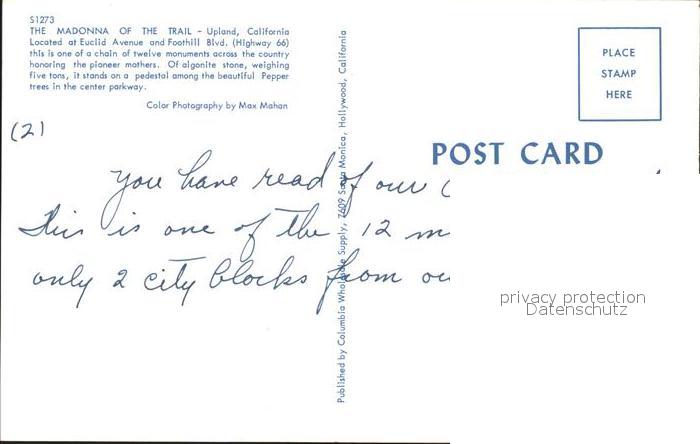 S1273
THE MADONNA OF THE TRAIL - Upland, California
Located at Euclid Avenue and Foothill Blvd. (Highway 66)
this is one of a chain of twelve monuments across the country
honoring the pioneer mothers. Of algonite stone, weighing
five tons, it stands on a pedestal among the beautiful Pepper
trees in the center parkway.
Color Photography by Max Mahan
(2)
You have read of our
This is one of the 12 m
only 2 city blocks from ou
Published by Columbia Wholesale Supply, 7609 Santa Monica, Hollywood, California
PLACE
STAMP
HERE
POST CARD
privacy protection
Datenschutz